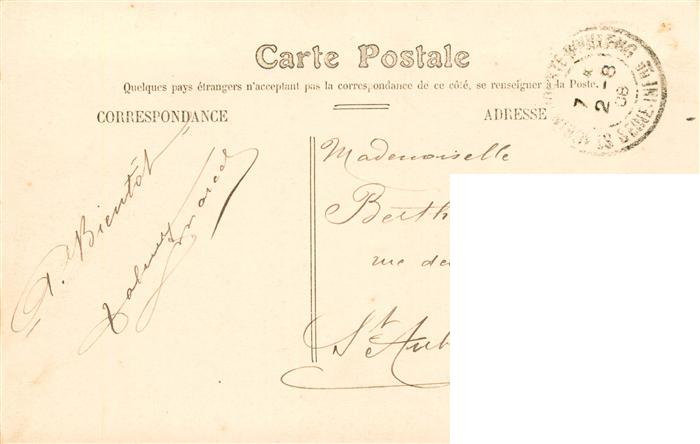 Carte Postale
Quelques pays étrangers n'acceptant pas la correspondance de ce côté, se renseigner à la Poste.
CORRESPONDANCE
ADRESSE
A Bientôt
Marcel
Mademoiselle
Berth
rue de
St Aub
7
2-8
08